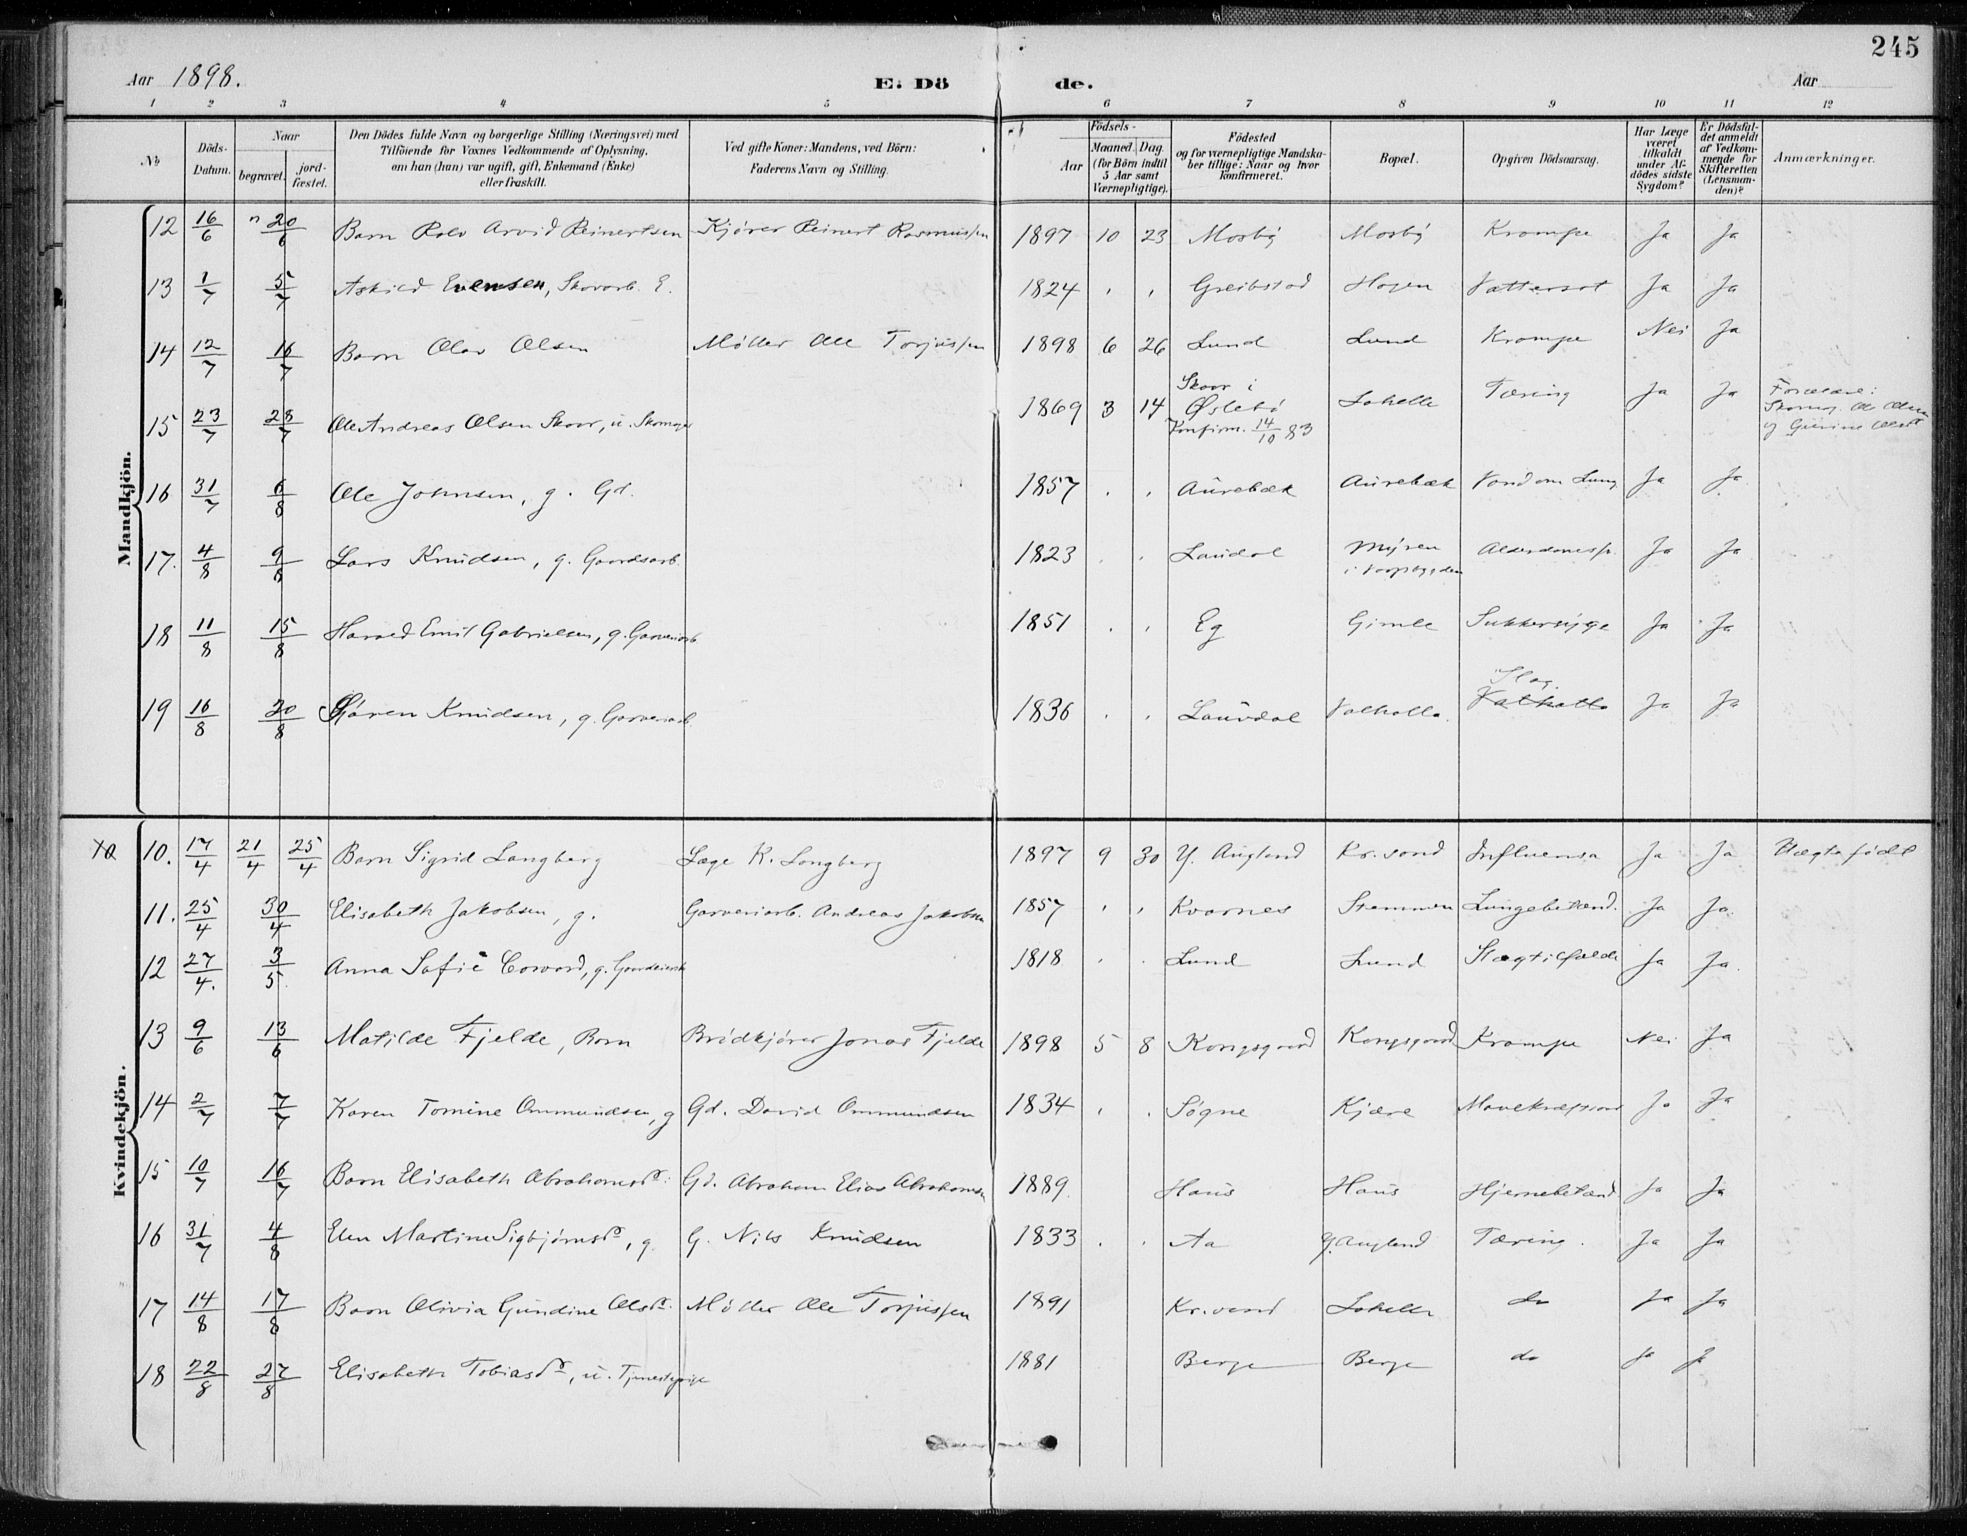 245
Aar 1898. E. Dö de. Aar
1 2 3 4 5 6 7 8 9 10 11 12
No Döds-Datum. Naar begravet. jord-fæstet. Den Dödes fulde Navn og borgerlige Stilling (Næringsvei) med Tilföiende for Voxnes Vedkommende af Oplysning, om han (hun) var ugift, gift, Enkemand (Enke) eller fraskilt. Ved gifte Koner: Mandens, ved Börn: Faderens Navn og Stilling. Födsels- Aar Maaned. Dag. (for Börn indtil 5 Aar samt Værnepligtige). Födested og for værnepligtige Mandskaber tillige: Naar og hvor konfirmeret. Bopæl. Opgiven Dödsaarsag. Har Læge været tilkaldt under Afdödes sidste Sygdom? Er Dödsfaldet anmeldt af Vedkommende for Skifteretten (Lensmanden)? Anmærkninger.
Mandkjön.
12 16/6 " 20/6 Barn Rolv Arvid Reinertsen Kjører Reinert Rasmussen 1897 10 23 Mosby Mosby Krampe Ja Ja
13 1/7 5/7 Askild Evensen, Skovarb. E. 1824 . . Greibstad Hagen Vattersot Ja Ja
14 12/7 16/7 Barn Olav Olsen Møller Ole Torjussen 1898 6 26 Lund Lund Krampe Nei Ja
15 23/7 28/7 Ole Andreas Olsen Skaar, u. Skomager 1869 3 14 Skaar i Øslebø Konfirm. 14/10 83 Lahelle Tæring Ja Ja Forældre: Skomag. Ole Olsen og Gurine Olsdr
16 31/7 6/8 Ole Johnsen, g. Gd. 1857 . . Aurebæk Aurebæk Vand om Lung Ja Ja
17. 4/8 9/8 Lars Knudsen, g. Gaardsarb. 1823 . . Laudal Myren i Alderdomssv. Ja Ja
18 11/8 15/8 Harald Emil Gabrielsen, g. Garveriarb 1851 . . Eg Gimle Sukkersyge Ja Ja
19 16/8 20/8 Søren Knudsen, g. Garveriarb. 1836 . . Lauvdal Valhalla. Slag. Valhalla Ja Ja
Kvindekjön.
10. 17/4 21/4 25/4 Barn Sigrid Langberg Læge K. Langberg 1897 9 30 Y. Augland Kr.sand Influensa Ja Ja Uægtefødt
11. 25/4 30/4 Elisabeth Jakobsen, g. Garveriarb. Andreas Jakobsen 1857 . . Kvarnes Stemmen Lungebetænd. Ja Ja.
12 27/4. 3/5. Anna Sofie Coward, g. Gaardeierske 1818 . . Lund Lund Slagtilfælde Ja Ja.
13 9/6 13/6 Matilde Fjelde, Barn Brødkjører Jonas Fjelde 1898 5 8 Kongsgaard Kongsgaard Krampe Nei Ja
14 2/7 7/7 Karen Tomine Ommundsen, g Gd. David Ommundsen 1834 . . Søgne Kjære Mavekræft Ja Ja
15 10/7 16/7 Barn Elisabeth Abrahamsdr. Gd. Abraham Elias Abrahamsen 1889. Haus Haus Hjernebetænd Ja Ja
16 31/7 4/8 Elen Martine Sigbjørnsdr, g. G. Nils Knudsen 1833 . . Aa Y. Augland Tæring. Ja Ja
17 14/8 17/8 Barn Olivia Gundine Olsdr. Møller Ole Torjussen 1891 Kr.sand Lahelle do Ja Ja
18 22/8 27/8 Elisabeth Tobiasdr, u. Tjenestepige 1881 Berge Berge do Ja Ja